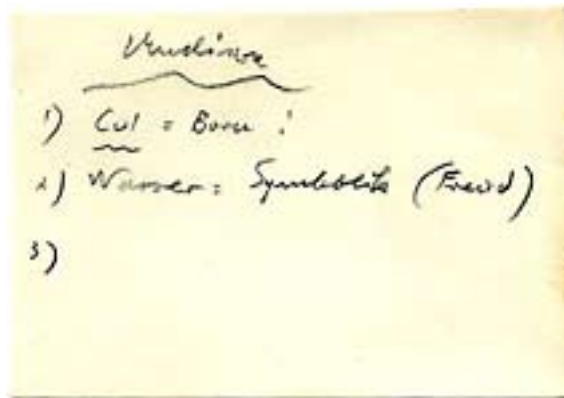 1) Cul = Born !
2) Wasser = Symbolik (Freud)
3)